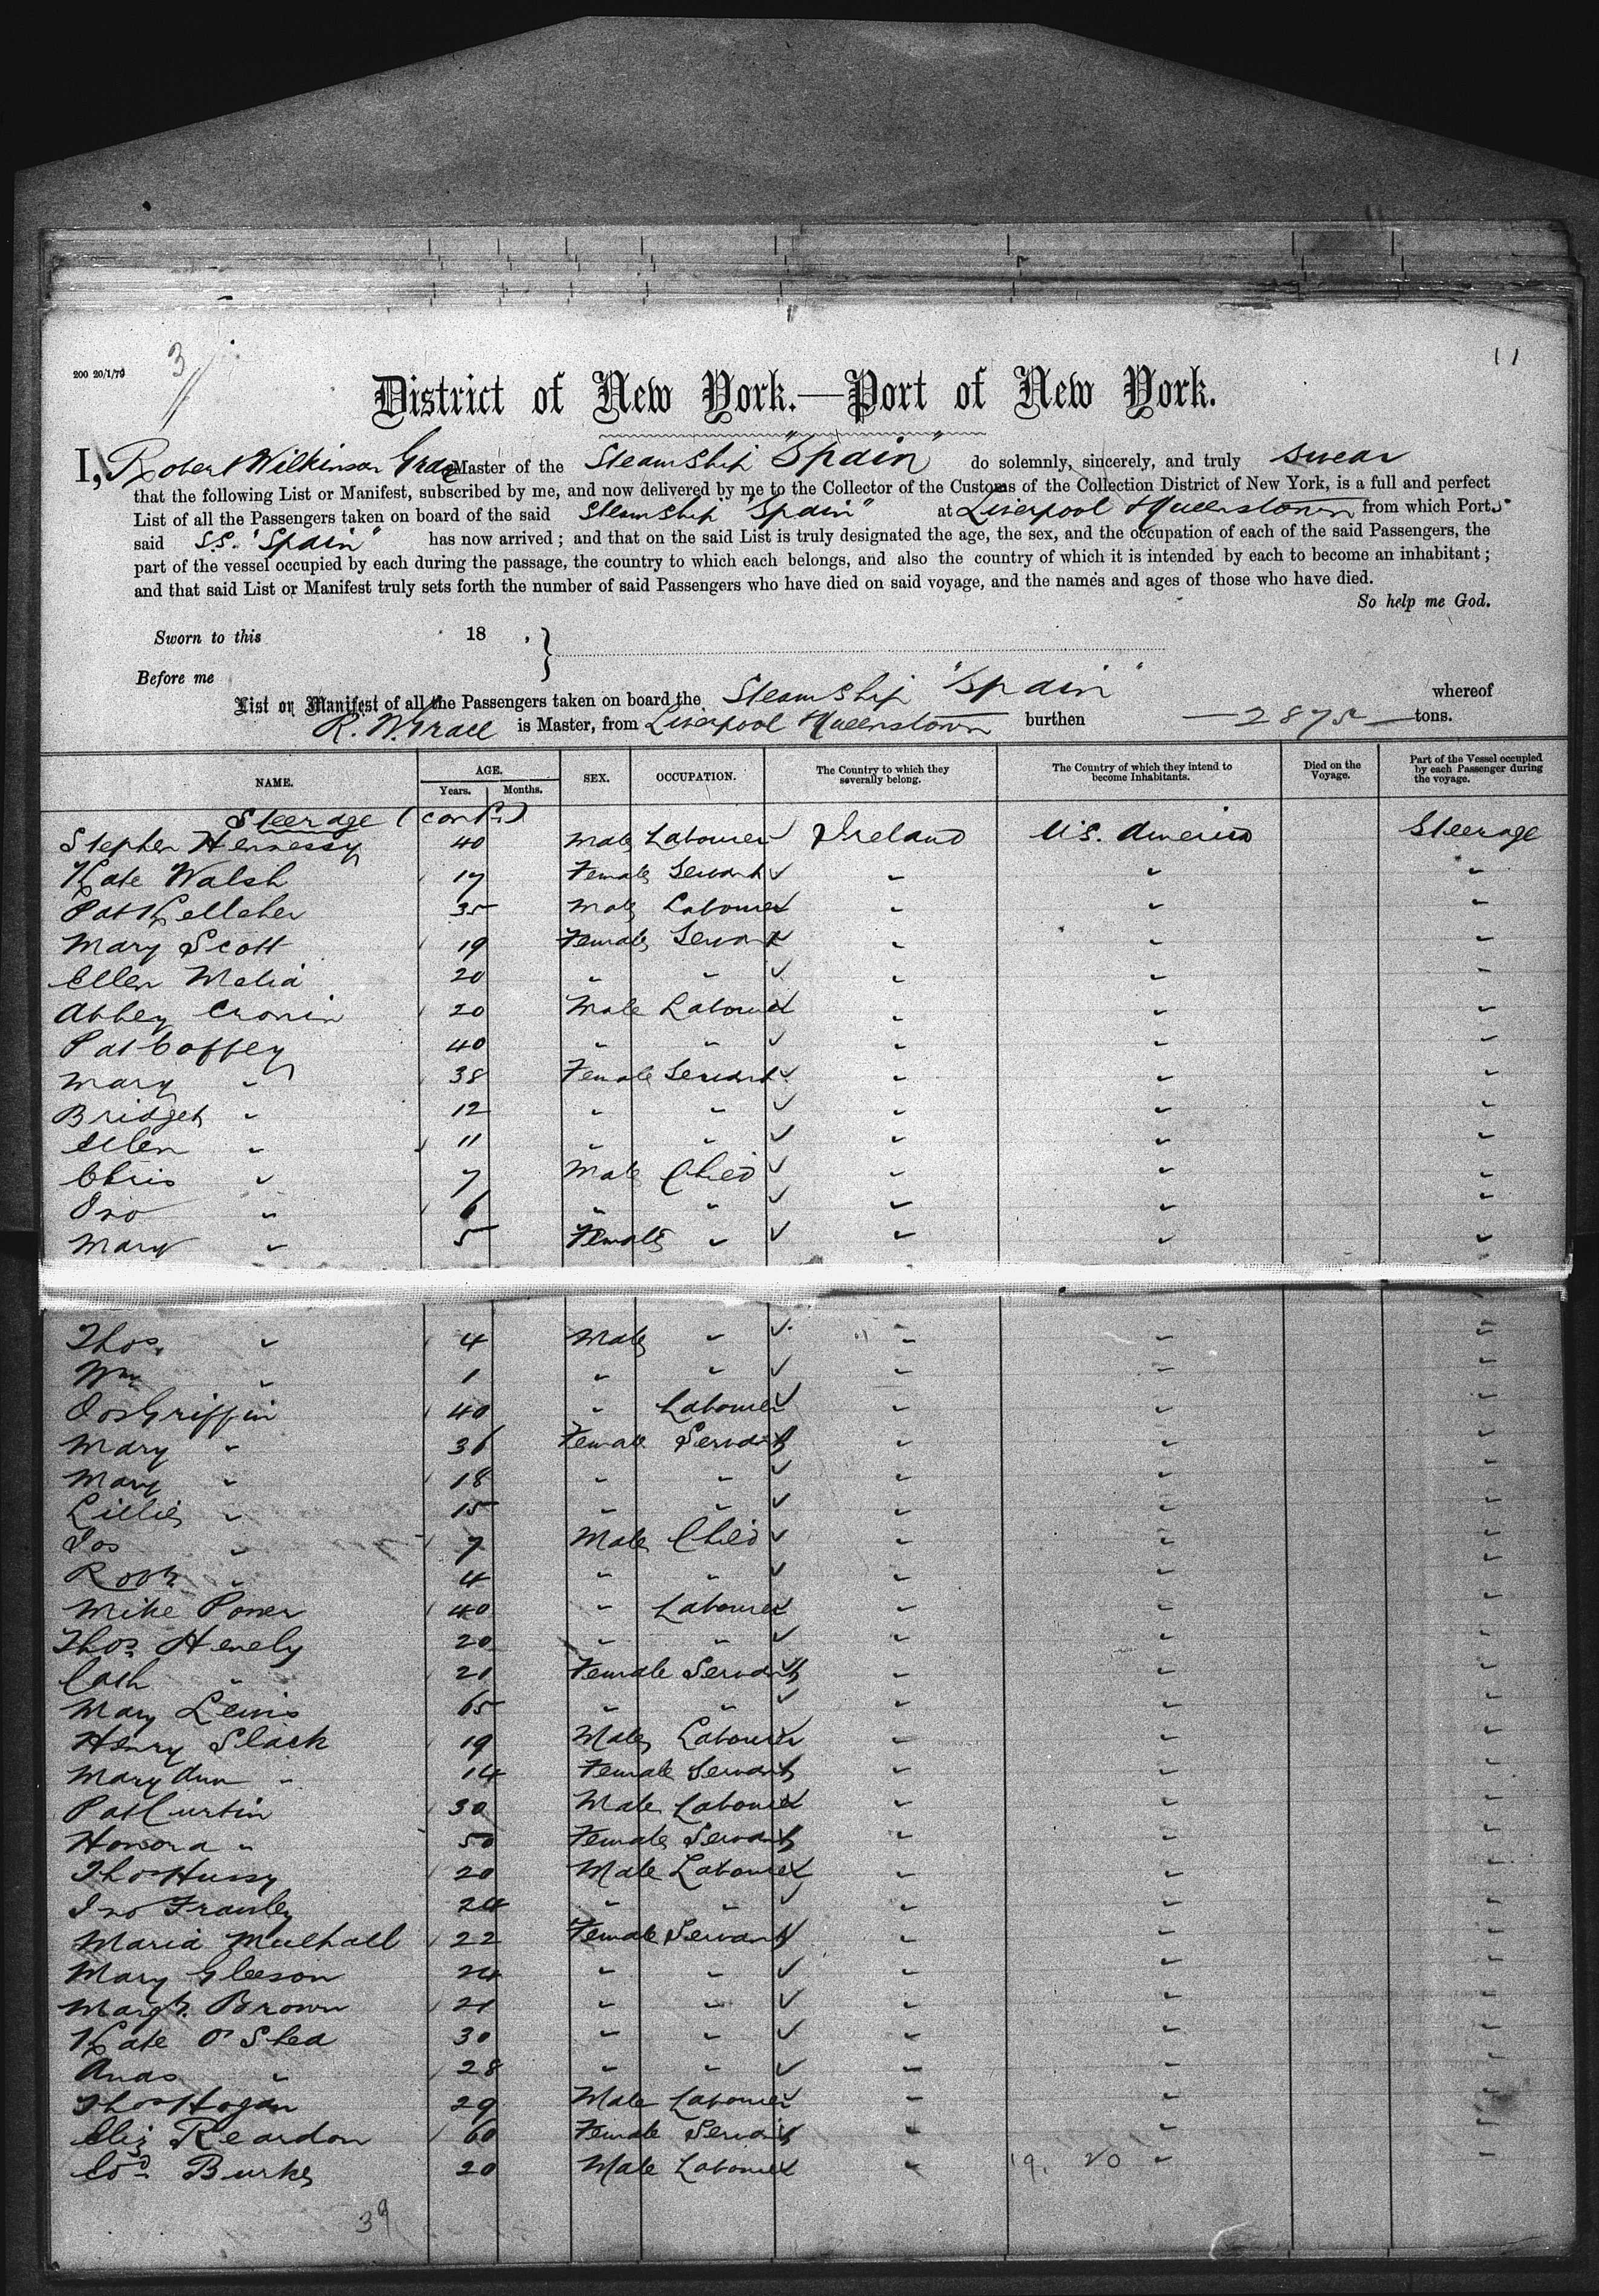 200 20/1/79
3
11
District of New York.—Port of New York.
I, Robert Wilkinson Grace Master of the Steamship "Spain" do solemnly, sincerely, and truly swear
that the following List or Manifest, subscribed by me, and now delivered by me to the Collector of the Customs of the Collection District of New York, is a full and perfect
List of all the Passengers taken on board of the said Steamship "Spain" at Liverpool & Queenstown from which Ports
said S.S. "Spain" has now arrived; and that on the said List is truly designated the age, the sex, and the occupation of each of the said Passengers, the
part of the vessel occupied by each during the passage, the country to which each belongs, and also the country of which it is intended by each to become an inhabitant;
and that said List or Manifest truly sets forth the number of said Passengers who have died on said voyage, and the names and ages of those who have died.
So help me God.
Sworn to this 18 ,
Before me
List or Manifest of all the Passengers taken on board the Steamship "Spain" whereof
R. W. Grace is Master, from Liverpool & Queenstown burthen — 2875 — tons.
NAME. AGE. Years. Months. SEX. OCCUPATION. The Country to which they severally belong. The Country of which they intend to become Inhabitants. Died on the Voyage. Part of the Vessel occupied by each Passenger during the voyage.
Steerage (cont.)
Stephen Hennessy 40 Male Labourer Ireland U.S. America Steerage
Kate Walsh 17 Female Servant " " "
Pat Kelleher 35 Male Labourer " " "
Mary Scott 19 Female Servant " " "
Ellen Melia 20 " " " " "
Abbey Cronin 20 Male Labourer " " "
Pat Coffey 40 " " " " "
Mary " 38 Female Servant " " "
Bridget " 12 " " " " "
Ellen " 11 " " " " "
Chris " 7 Male Child " " "
Jno " 6 " " " " "
Mary " 5 Female " " " "
Thos. " 4 Male " " " "
Wm " 1 " " " " "
Jos Griffin 40 " Labourer " " "
Mary " 36 Female Servant " " "
Mary " 18 " " " " "
Lillie " 15 " " " " "
Jos " 7 Male Child " " "
Robt. " 4 " " " " "
Mike Power 40 " Labourer " " "
Thos. Henely 20 " " " " "
Cath " 21 Female Servant " " "
Mary Lewis 65 " " " " "
Henry Slack 19 Male Labourer " " "
Mary Ann " 14 Female Servant " " "
Pat Curtin 30 Male Labourer " " "
Honora " 50 Female Servant " " "
Thos Hussy 20 Male Labourer " " "
Jno Frawley 24 " " " " "
Maria Mulhall 22 Female Servant " " "
Mary Gleeson 24 " " " " "
Margt. Brown 21 " " " " "
Kate O'Shea 30 " " " " "
" 28 " " " " "
Thos Hogan 29 Male Labourer " " "
Eliz Reardon 60 Female Servant " " "
Burke 20 Male Labourer " 19. 20 " "
39